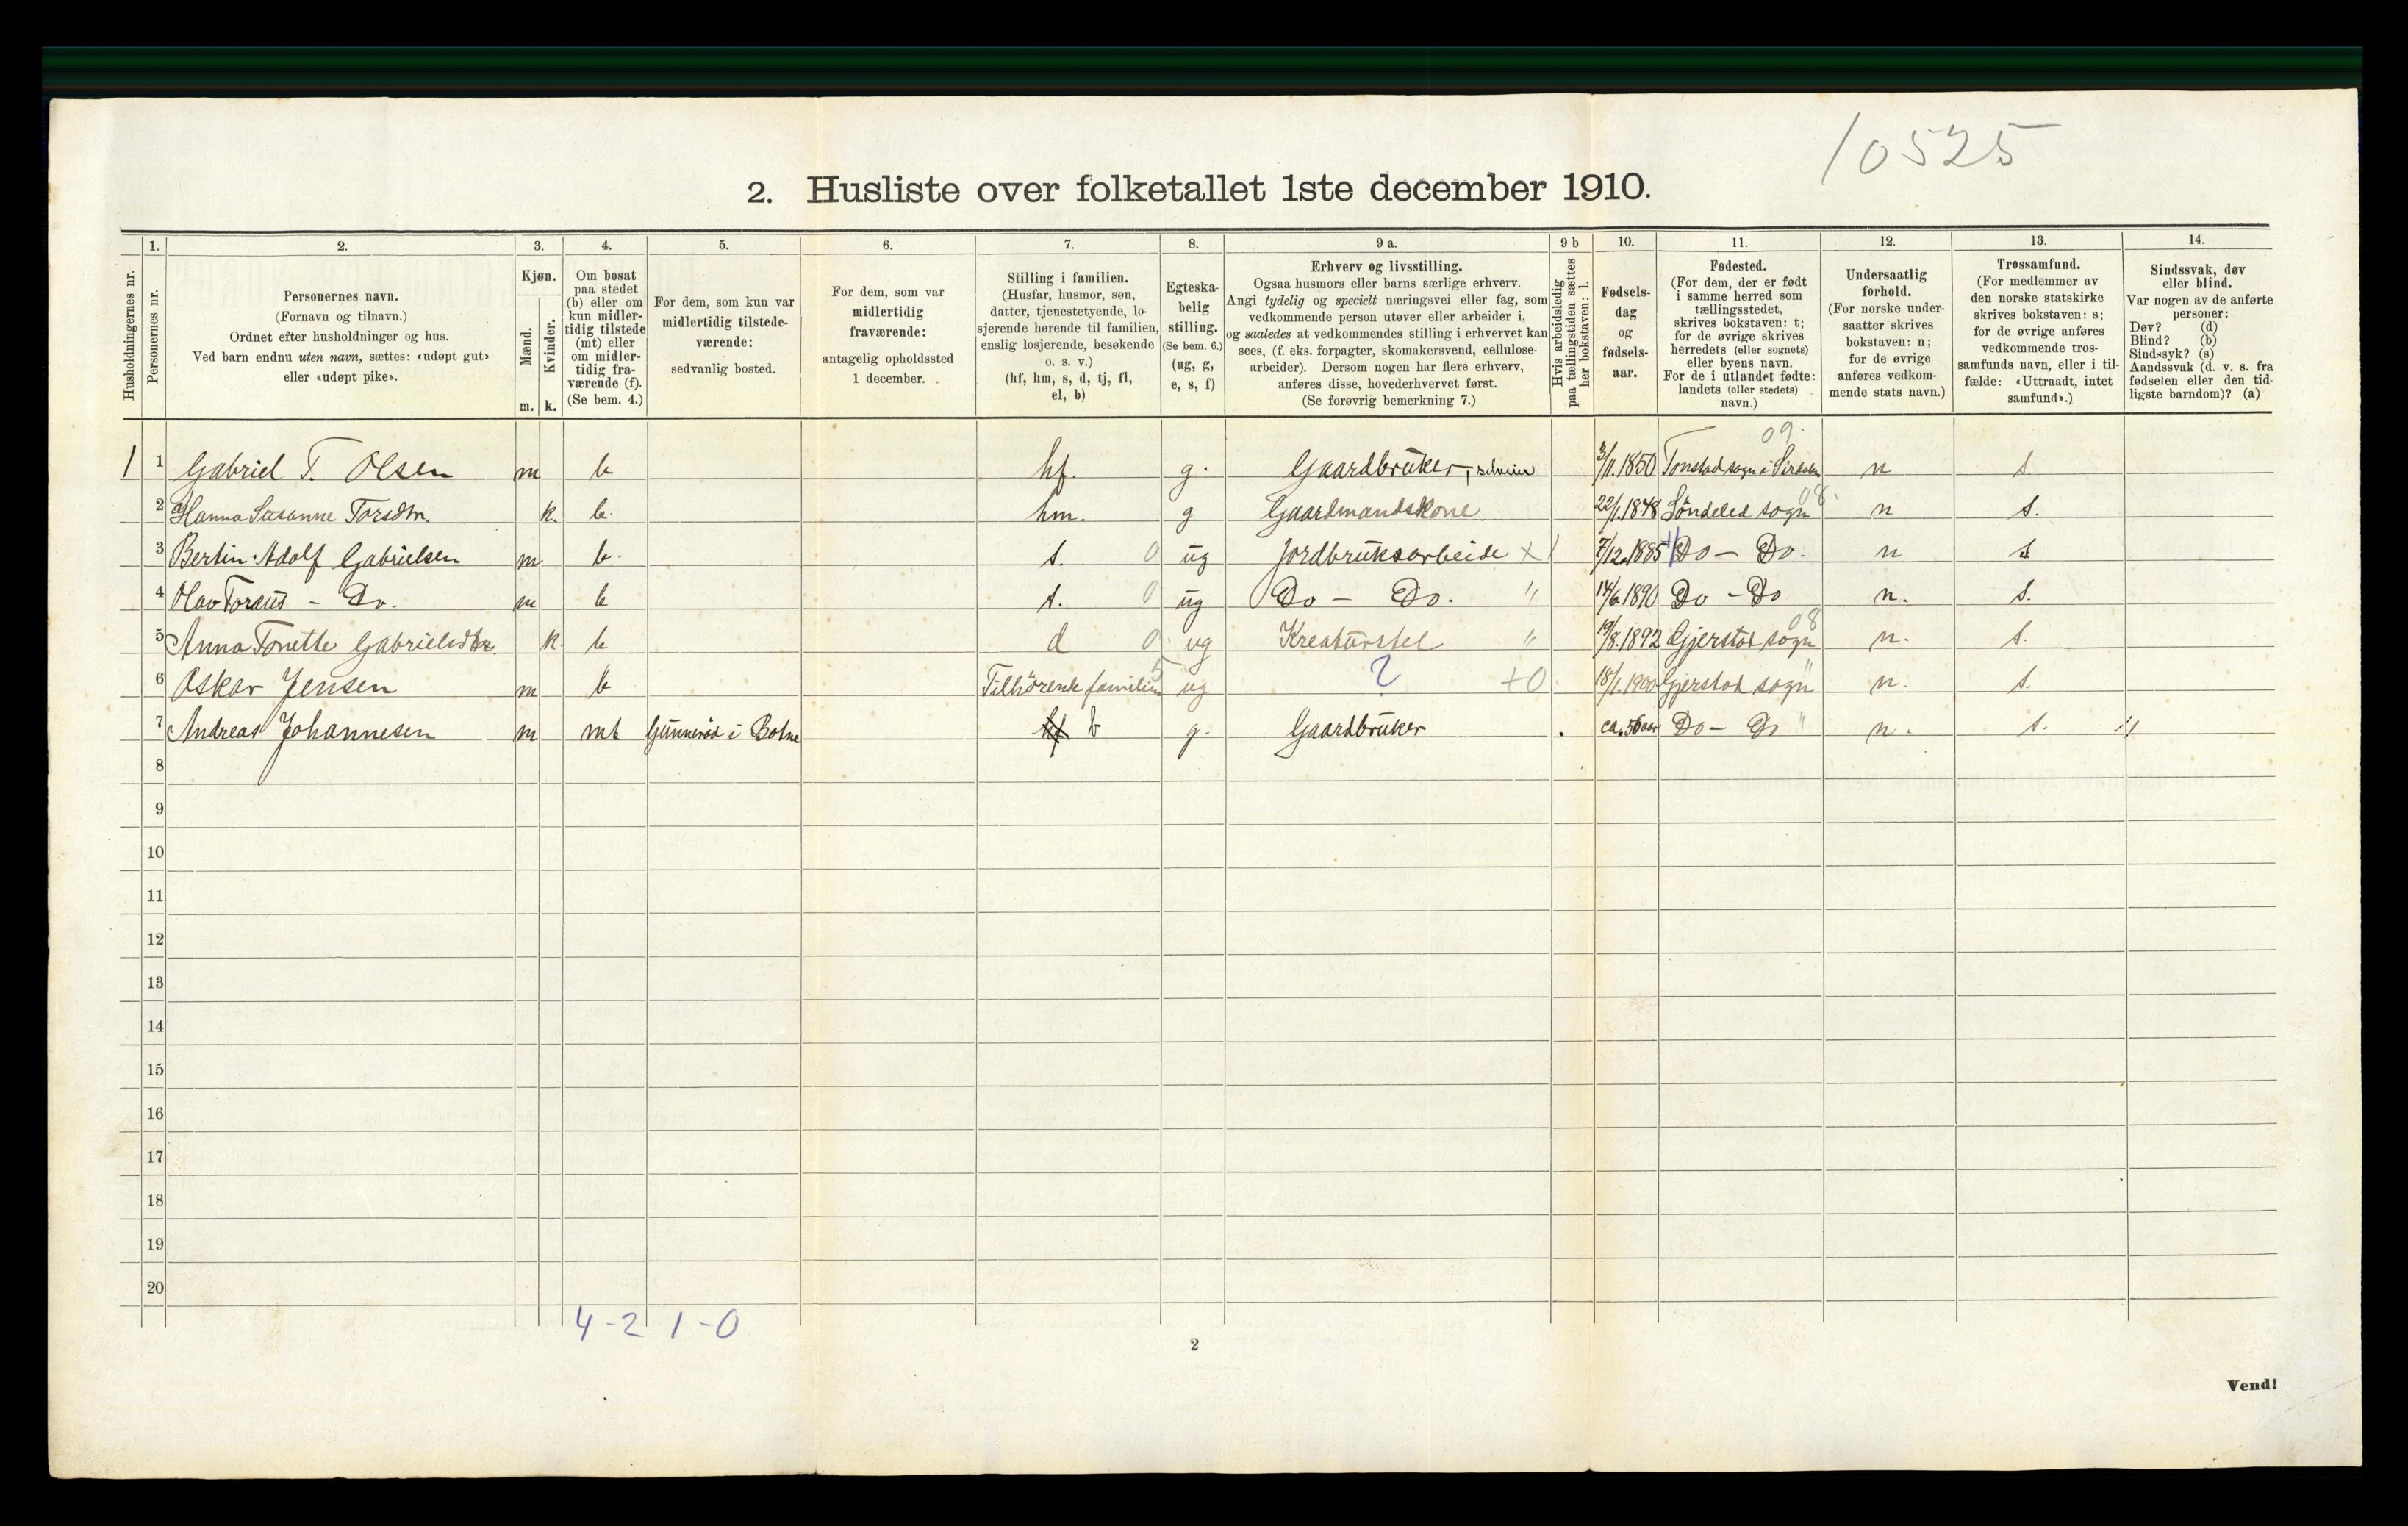 10525
2. Husliste over folketallet 1ste december 1910.
Husholdningernes nr.
1. Personernes nr.
2. Personernes navn.
(Fornavn og tilnavn.)
Ordnet efter husholdninger og hus.
Ved barn endnu uten navn, sættes: «udøpt gut»
eller «udøpt pike».
3. Kjøn.
Mænd. m.
Kvinder. k.
4. Om bosat
paa stedet
(b) eller om
kun midler-
tidig tilstede
(mt) eller
om midler-
tidig fra-
værende (f).
(Se bem. 4.)
5. For dem, som kun var
midlertidig tilstede-
værende:
sedvanlig bosted.
6. For dem, som var
midlertidig
fraværende:
antagelig opholdssted
1 december.
7. Stilling i familien.
(Husfar, husmor, søn,
datter, tjenestetyende, lo-
sjerende hørende til familien,
enslig losjerende, besøkende
o. s. v.)
(hf, hm, s, d, tj, fl,
el, b)
8. Egteska-
belig
stilling.
(Se bem. 6.)
(ug, g,
e, s, f)
9 a. Erhverv og livsstilling.
Ogsaa husmors eller barns særlige erhverv.
Angi tydelig og specielt næringsvei eller fag, som
vedkommende person utøver eller arbeider i,
og saaledes at vedkommendes stilling i erhvervet kan
sees, (f. eks. forpagter, skomakersvend, cellulose-
arbeider). Dersom nogen har flere erhverv,
anføres disse, hovederhvervet først.
(Se forøvrig bemerkning 7.)
9 b Hvis arbeidsledig
paa tællingstiden sættes
her bokstaven: l.
10. Fødsels-
dag
og
fødsels-
aar.
11. Fødested.
(For dem, der er født
i samme herred som
tællingsstedet,
skrives bokstaven: t;
for de øvrige skrives
herredets (eller sognets)
eller byens navn.
For de i utlandet fødte:
landets (eller stedets)
navn.)
12. Undersaatlig
forhold.
(For norske under-
saatter skrives
bokstaven: n;
for de øvrige
anføres vedkom-
mende stats navn.)
13. Trossamfund.
(For medlemmer av
den norske statskirke
skrives bokstaven: s;
for de øvrige anføres
vedkommende tros-
samfunds navn, eller i til-
fælde: «Uttraadt, intet
samfund».)
14. Sindssvak, døv
eller blind.
Var nogen av de anførte
personer:
Døv? (d)
Blind? (b)
Sindssyk? (s)
Aandssvak (d. v. s. fra
fødselen eller den tid-
ligste barndom)? (a)
09.
1 1 Gabriel T. Olsen m b hf. g. Gaardbruker, selveier 3/11.1850 Tonstad sogn i Sirdalen n s.
08.
2 Hanna Susanne Torsdtr. k. b. hm. g Gaardmandskone 22/1.1848 Söndeled sogn n s.
3 Bertin Adolf Gabrielsen m b. s. 0 ug Jordbruksarbeide x 1 7/12.1885 Do - Do. n s
4 Olav Toraus - Do. m b s. 0 ug Do - Do. " 14/6.1890 Do - Do n. s.
08
5 Anna Tonette Gabrielsdtr. k. b d 0 ug Kreaturstel " 19/8.1892 Gjerstad sogn n. s.
6 Oskar Jensen m b Tilhörende familien 5 ug ? +0 18/1.1900 Gjerstad sogn " n. s.
7 Andreas Johannesen m mt Gunnerød i Botne hf b g. Gaardbruker . ca. 56 aar Do - Do " n. s.
8
9
10
11
12
13
14
15
16
17
18
19
20
4-2 1-0
2
Vend!